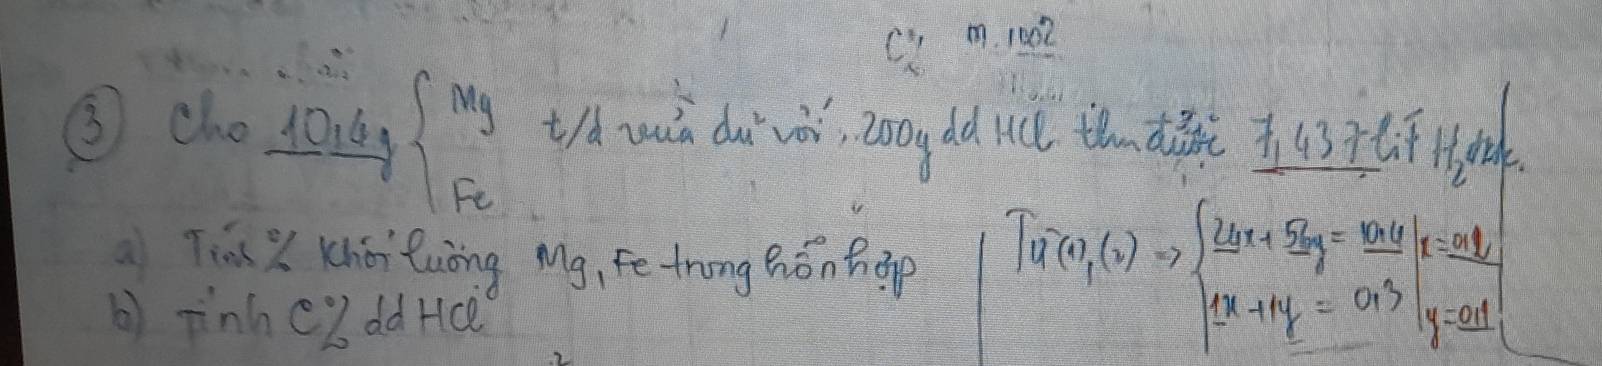 C% m.100%
③ Cho 10,4g { Mg Fe t/d vừa đủ với 200g dd HCl thu được 7,437 lít H₂ đkc.
a) Tính % khối lượng Mg, Fe trong hỗn hợp
b) Tính C% dd HCl
Từ (1), (2) => { 24x + 56y = 10,4 | x = 0,2
1x + 1y = 0,3 | y = 0,1